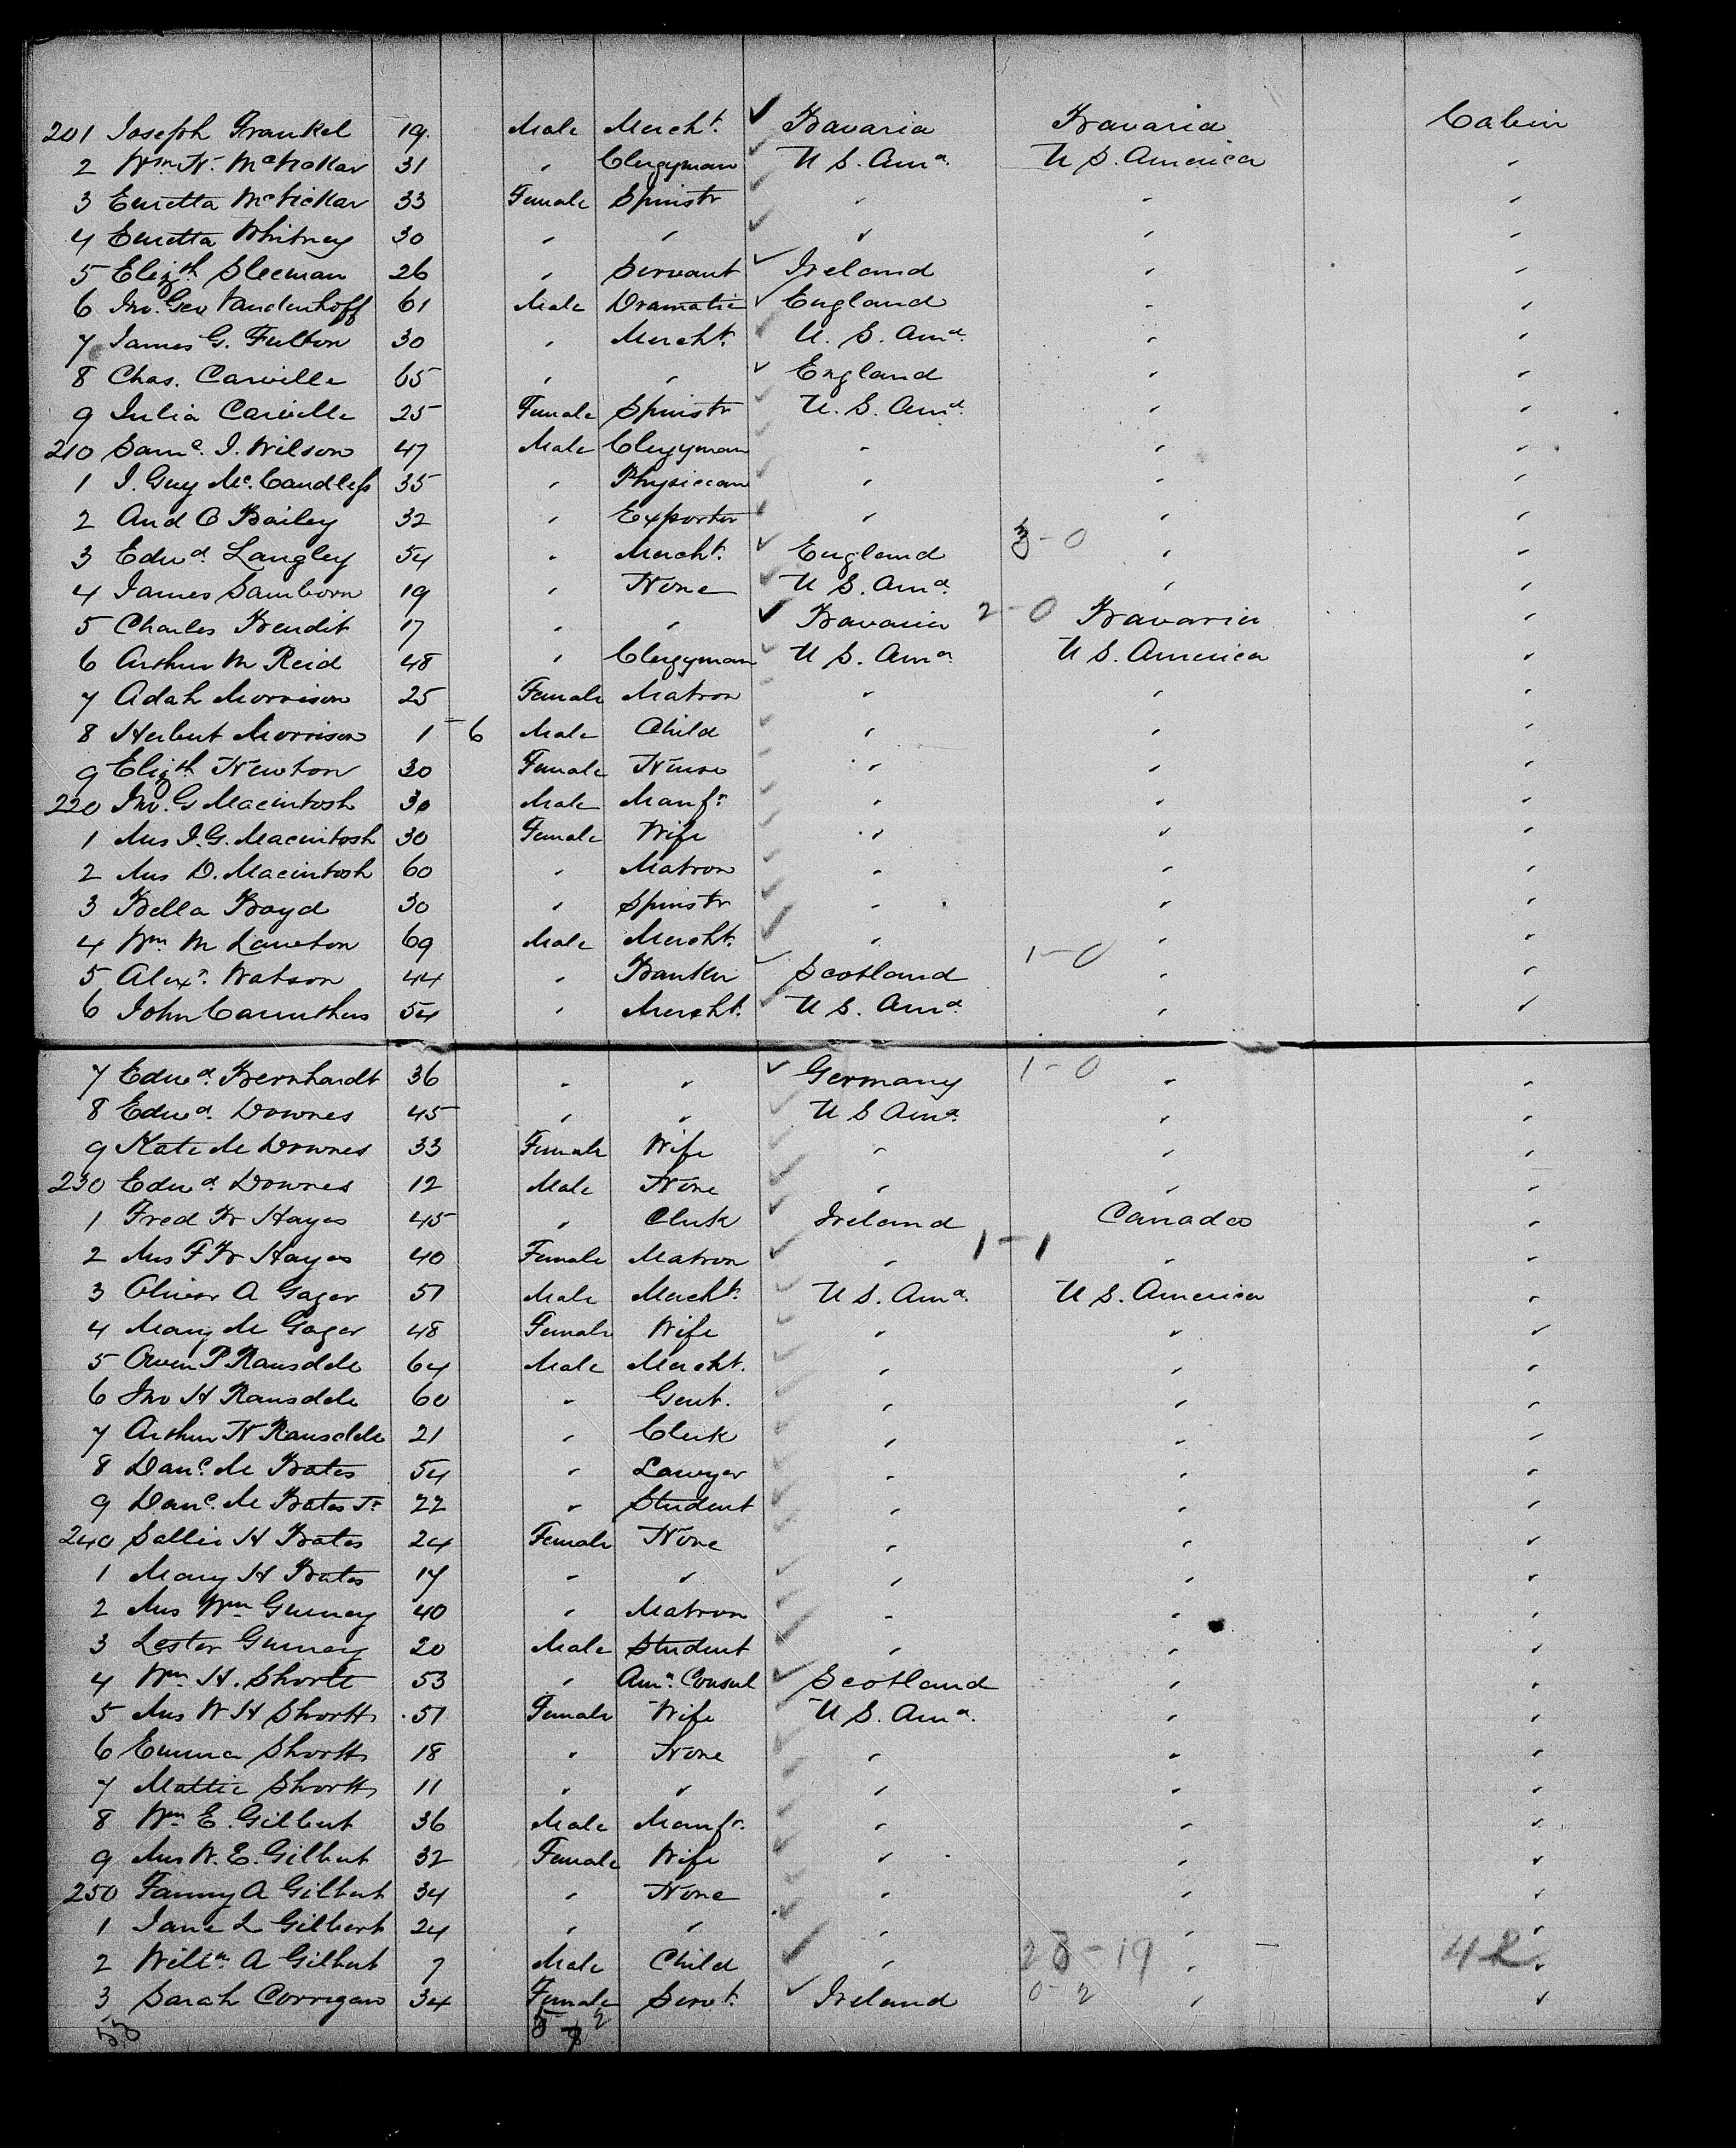 201 Joseph Frankel 19. Male Mercht. Bavaria Bavaria Cabin
2 Wm. N. McVickar 31 " Clergyman U S. Ama. U S. America "
3 Euretta McVickar 33 Female Spinstr " " "
4 Euretta Whitney 30 " " " " "
5 Elizth Sleeman 26 " Servant Ireland " "
6 Jno. Geo Vandenhoff 61 Male Dramatic England " "
7 James G. Fulton 30 " Mercht. U. S. Ama. " "
8 Chas. Carville 65 " " England " "
9 Julia Carville 25 Female Spinstr U. S. Ama. " "
210 Saml. J. Wilson 47 Male Clergyman " " "
1 J. Guy Mc. Candless 35 " Physician " " "
2 And C Bailey 32 " Exporter " " "
3 Edwd. Langley 54 " Mercht. England 3-0 " "
4 James Samborn 19 " None U S. Ama. " "
5 Charles Bendit 17 " " Bavaria 2-0 Bavaria "
6 Arthur M Reid 48 " Clergyman U S. Ama. U S. America "
7 Adah Morrison 25 Female Matron " " "
8 Herbert Morrison 1-6 Male Child " " "
9 Elizth Newton 30 Female Nurse " " "
220 Jno. G Macintosh 30 Male Manfr. " " "
1 Mrs J. G. Macintosh 30 Female Wife " " "
2 Mrs D. Macintosh 60 " Matron " " "
3 Bella Boyd 30 " Spinstr " " "
4 Wm. M Lawton 69 Male Mercht. " " "
5 Alexr. Watson 44 " Banker Scotland 1-0 " "
6 John Carruthers 54 " Mercht. U S. Ama. " "
7 Edwd. Bernhardt 36 " " Germany 1-0 " "
8 Edwd. Downes 45 " " U S Ama. " "
9 Kate M Downes 33 Female Wife " " "
230 Edwd. Downes 12 Male None " " "
1 Fred W Hayes 45 " Clerk Ireland Canada "
2 Mrs F W Hayes 40 Female Matron " 1-1 " "
3 Oliver A Gager 51 Male Mercht. U S. Ama. U S. America "
4 Mary M Gager 48 Female Wife " " "
5 Owen P Ransdele 64 Male Mercht. " " "
6 Jno H Ransdele 60 " Gent. " " "
7 Arthur N Ransdele 21 " Clerk " " "
8 Danl. M Bates 54 " Lawyer " " "
9 Danl. M Bates Jr 22 " Student " " "
240 Sallie H Bates 24 Female None " " "
1 Mary H Bates 17 " " " " "
2 Mrs Wm Gurney 40 " Matron " " "
3 Lester Gurney 20 Male Student " " "
4 Wm. H. Shortt 53 " Amn. Consul Scotland " "
5 Mrs W H Shortt 51 Female Wife U S. Ama. " "
6 Emma Shortt 18 " None " " "
7 Mattie Shortt 11 " " " " "
8 Wm. E. Gilbert 36 Male Manfr. " " "
9 Mrs W. E. Gilbert 32 Female Wife " " "
250 Fanny A Gilbert 34 " None " " "
1 Jane L Gilbert 24 " " " " "
2 Willm. A Gilbert 7 Male Child " 28-19 " 42 "
3 Sarah Corrigan 34 Female Servt. Ireland 0-2 " "
53